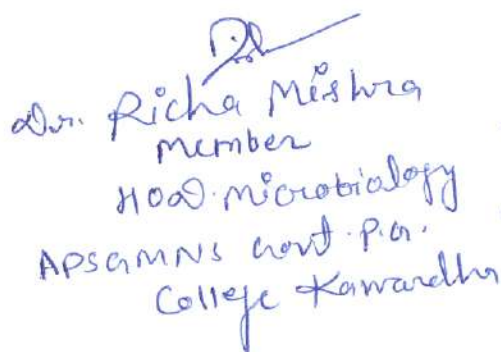 Dr. Richa Mishra
Member
HOD. Microbiology
APSGMNS Govt. P.G.
College Kawardha